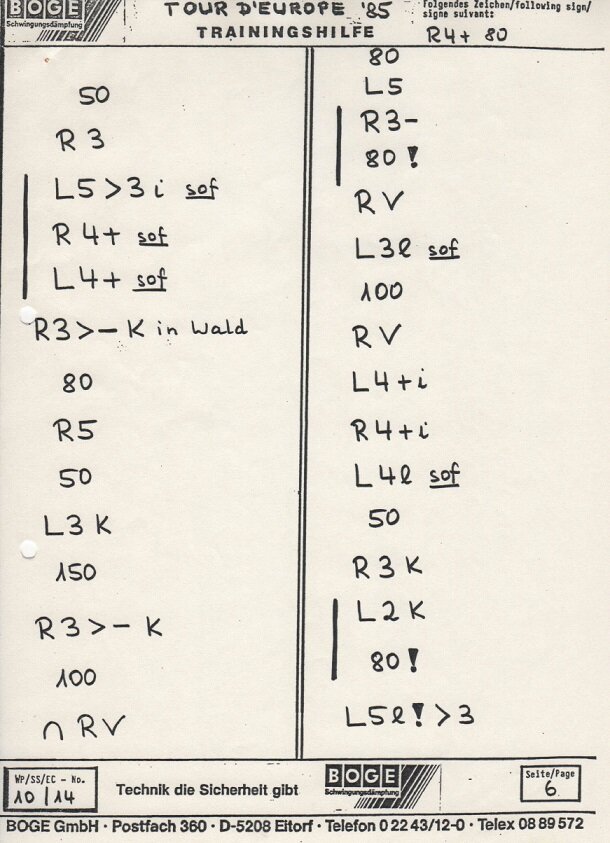 BOGE
Schwingungsdämpfung
TOUR D'EUROPE '85
TRAININGSHILFE
folgendes Zeichen/following sign/
signe suivant:
R4+ 80
50
R 3
L5 > 3 i sof
R 4+ sof
L4+ sof
R3 > – K in Wald
80
R5
50
L3 K
150
R3 > – K
100
∩ RV
80
L5
R3–
80 !
RV
L3l sof
100
RV
L4+i
R4+i
L4l sof
50
R3 K
L2 K
80 !
L5l! > 3
WP/SS/EC - No.
10 / 14
Technik die Sicherheit gibt
BOGE
Schwingungsdämpfung
Seite/Page
6
BOGE GmbH · Postfach 360 · D-5208 Eitorf · Telefon 0 22 43/12-0 · Telex 08 89 572